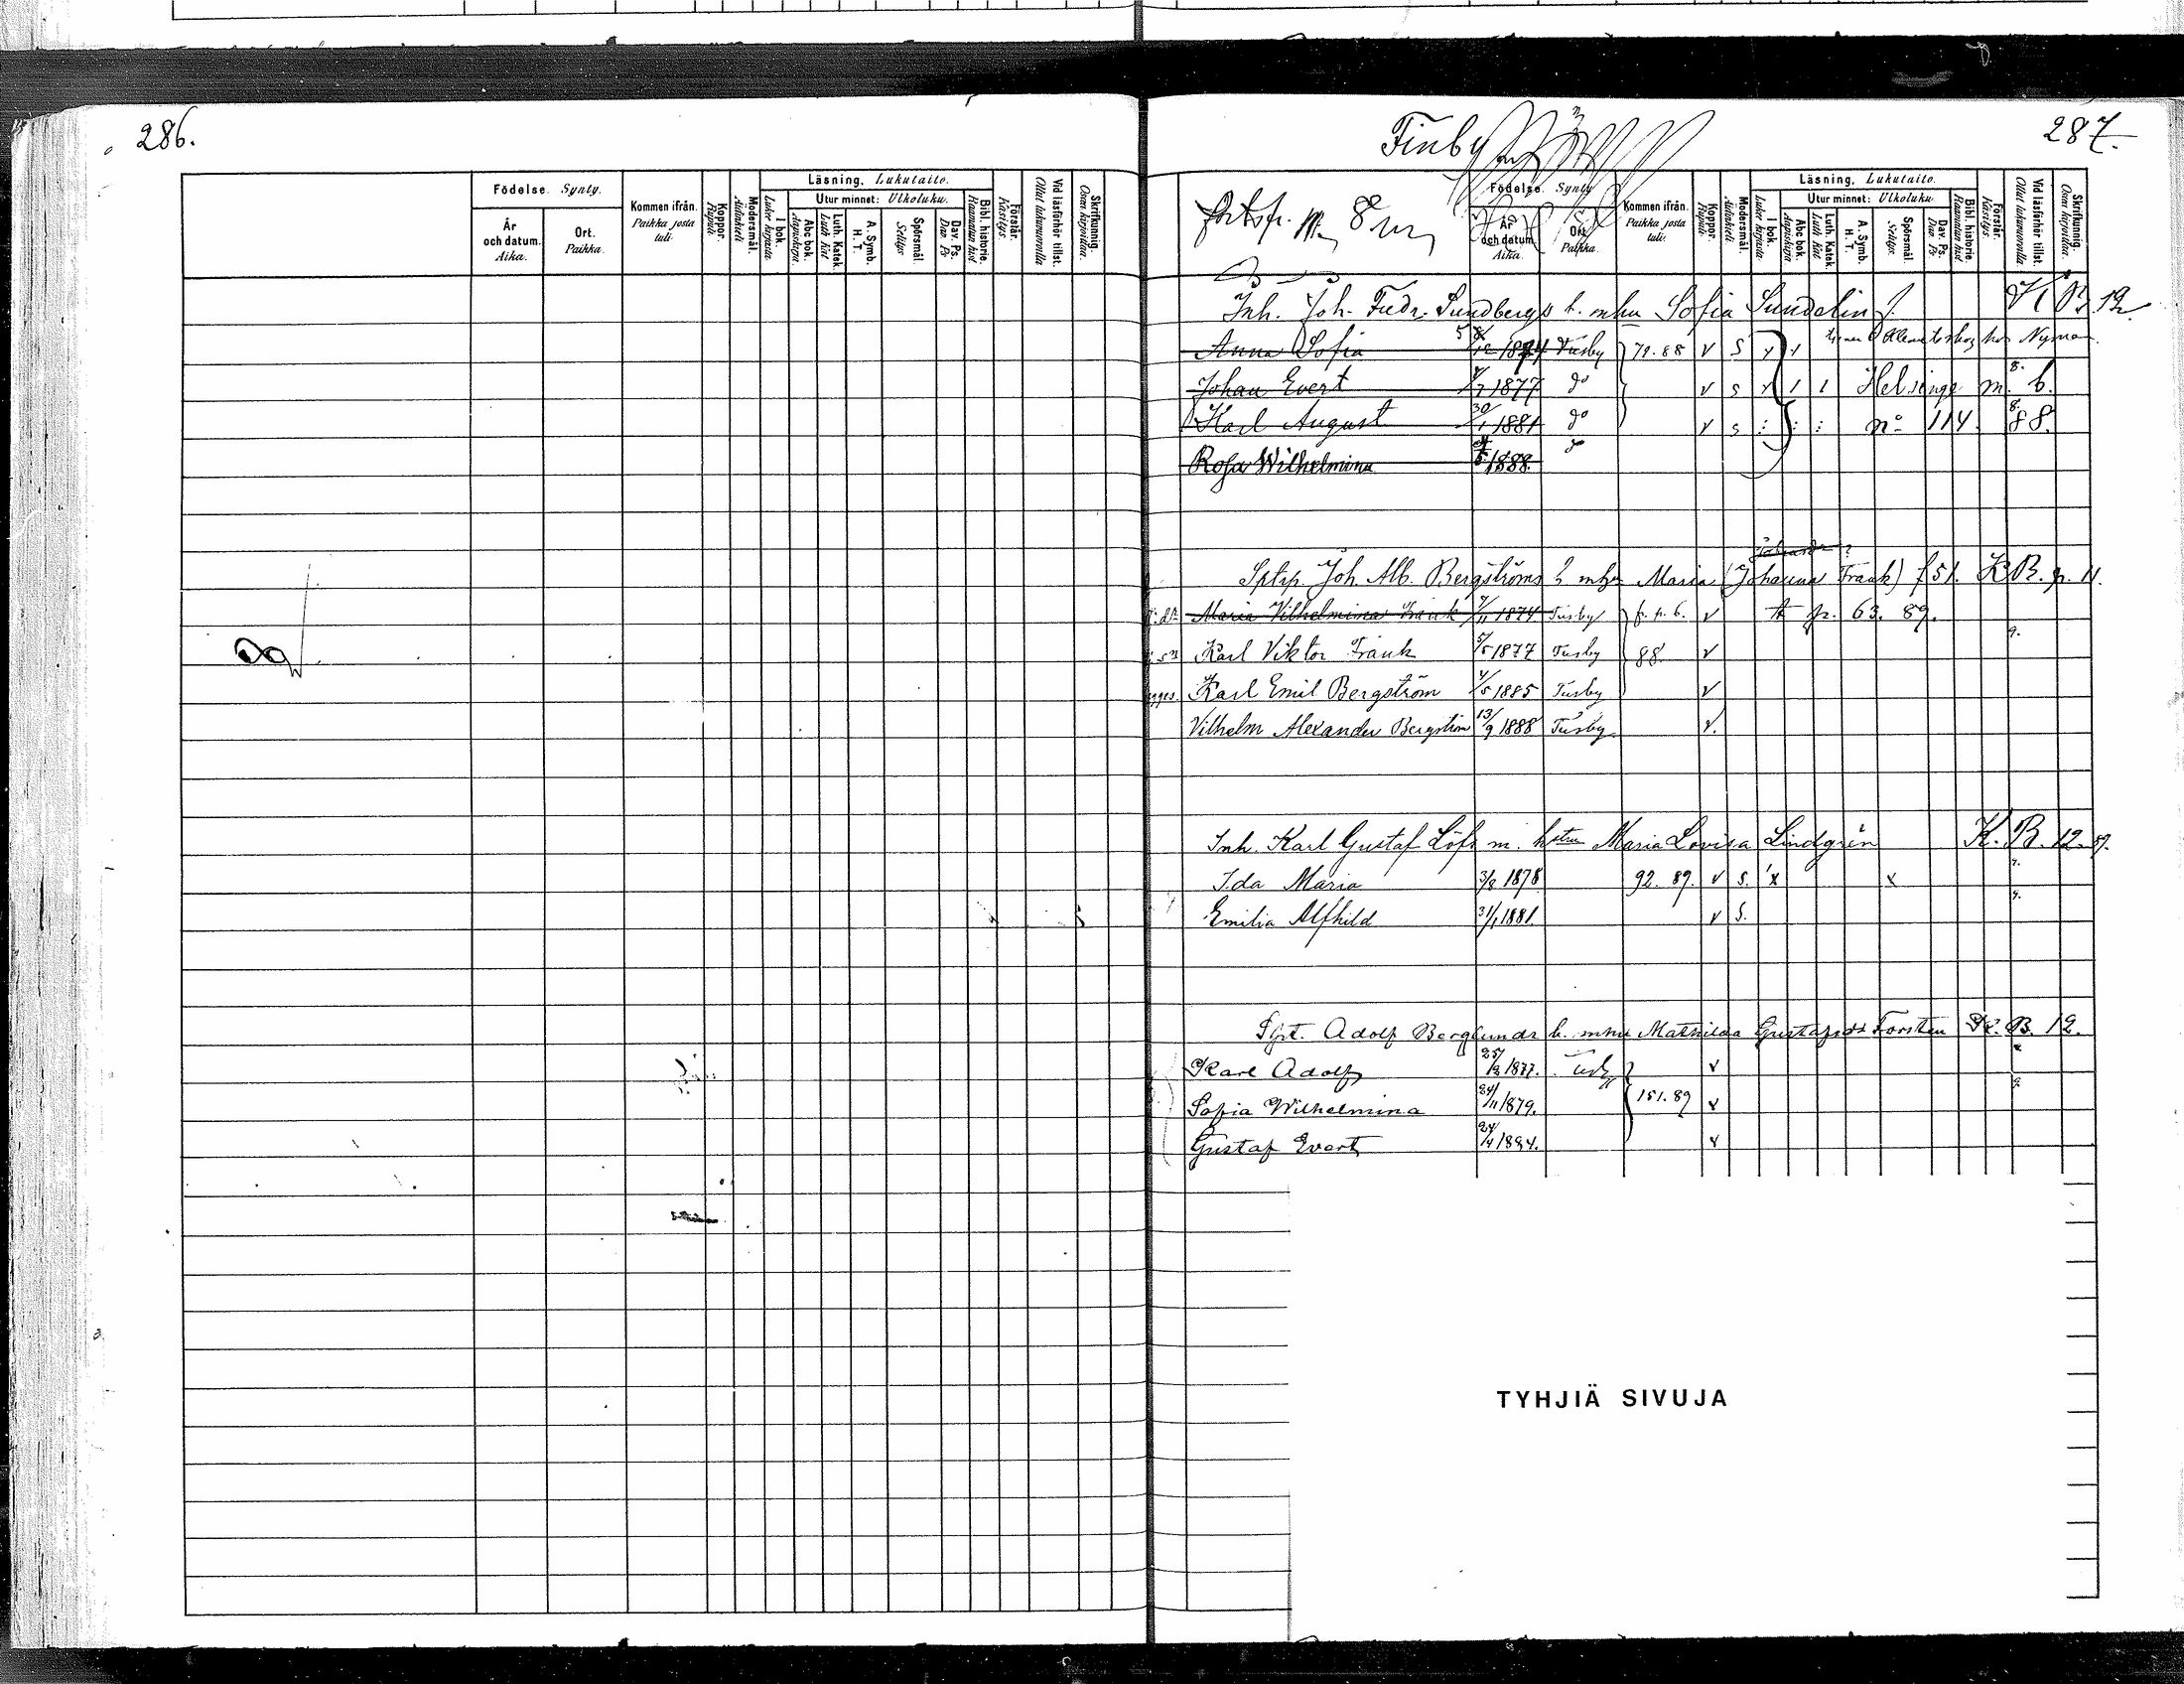 286.
Födelse. Synty.
År och datum. Aika.
Ort. Paikka.
Kommen ifrån. Paikka josta tuli.
Koppor. Rupuli.
Modersmål. Äidinkieli
Läsning. Lukutaito.
I bok. Lukee kirjasta.
Utur minnet: Ulkoluku.
Abc bok. Aapiskirja.
Luth. Katek. Luth Kat
A. Symb. H. T.
Spörsmål. Selitys
Dav. Ps. Dav. Ps
Bibl. historie. Raamatun hist
Förstår. Käsitys.
Vid läsförhör tillst. Ollut lukunuorilla
Skrifkunnig. Osaa kirjoittaa.
287.
Finby
Födelse. Synty
År och datum Aika.
Ort. Paikka.
Kommen ifrån. Paikka josta tuli.
Koppor. Rupuli.
Modersmål. Äidinkieli.
Läsning. Lukutaito.
I bok. Lukee kirjasta.
Utur minnet: Ulkoluku.
Abc bok. Aapiskirja
Luth. Katek. Luth Kat
A. Symb. H. T.
Spörsmål. Selitys.
Dav. Ps. Dav Ps
Bibl. historie. Raamatun hist
Förstår. Käsitys.
Vid läsförhör tillst. Ollut lukunuorilla.
Skrifkunnig. Osaa kirjoittaa.
Inh. Joh. Fredr. Sundbergs b. mhu Sofia Sundelin K B 12.
Anna Sofia 1874 Tusby 79.88 v S
Johan Evert 1877 do v s Helsinge m. b.
Karl August 30/1 1881 do v s no 114. 88.
Rosa Wilhelmina 1888 do
Joh. Alb. Bergströms b mhu Maria (Johanna Frank) f 51. K B. p. 11.
Maria Vilhelmina Frank 1874 Tusby f. p. 6. v p. 63. 89.
Karl Viktor Frank 5/5 1877 Tusby 88. v 9.
Karl Emil Bergström 4/5 1885 Tusby v
Vilhelm Alexander Bergström 13/9 1888 Tusby v.
Inh. Karl Gustaf Löfs m. hstru Maria Lovisa Lindgrén K. B. 12. 89.
Ida Maria 3/8 1878 92. 89. v S. x x
Emilia Alfhild 31/1 1881. v S.
Adolf Berglunds b. mhu Mathilda Gustafsdr Forsten K. B. 12.
Karl Adolf 25/ 1877. Tusby v
Sofia Wilhelmina 24/11 1879. 151. 89 v 9.
Gustaf Evert 24/4 1884. v
TYHJIÄ SIVUJA